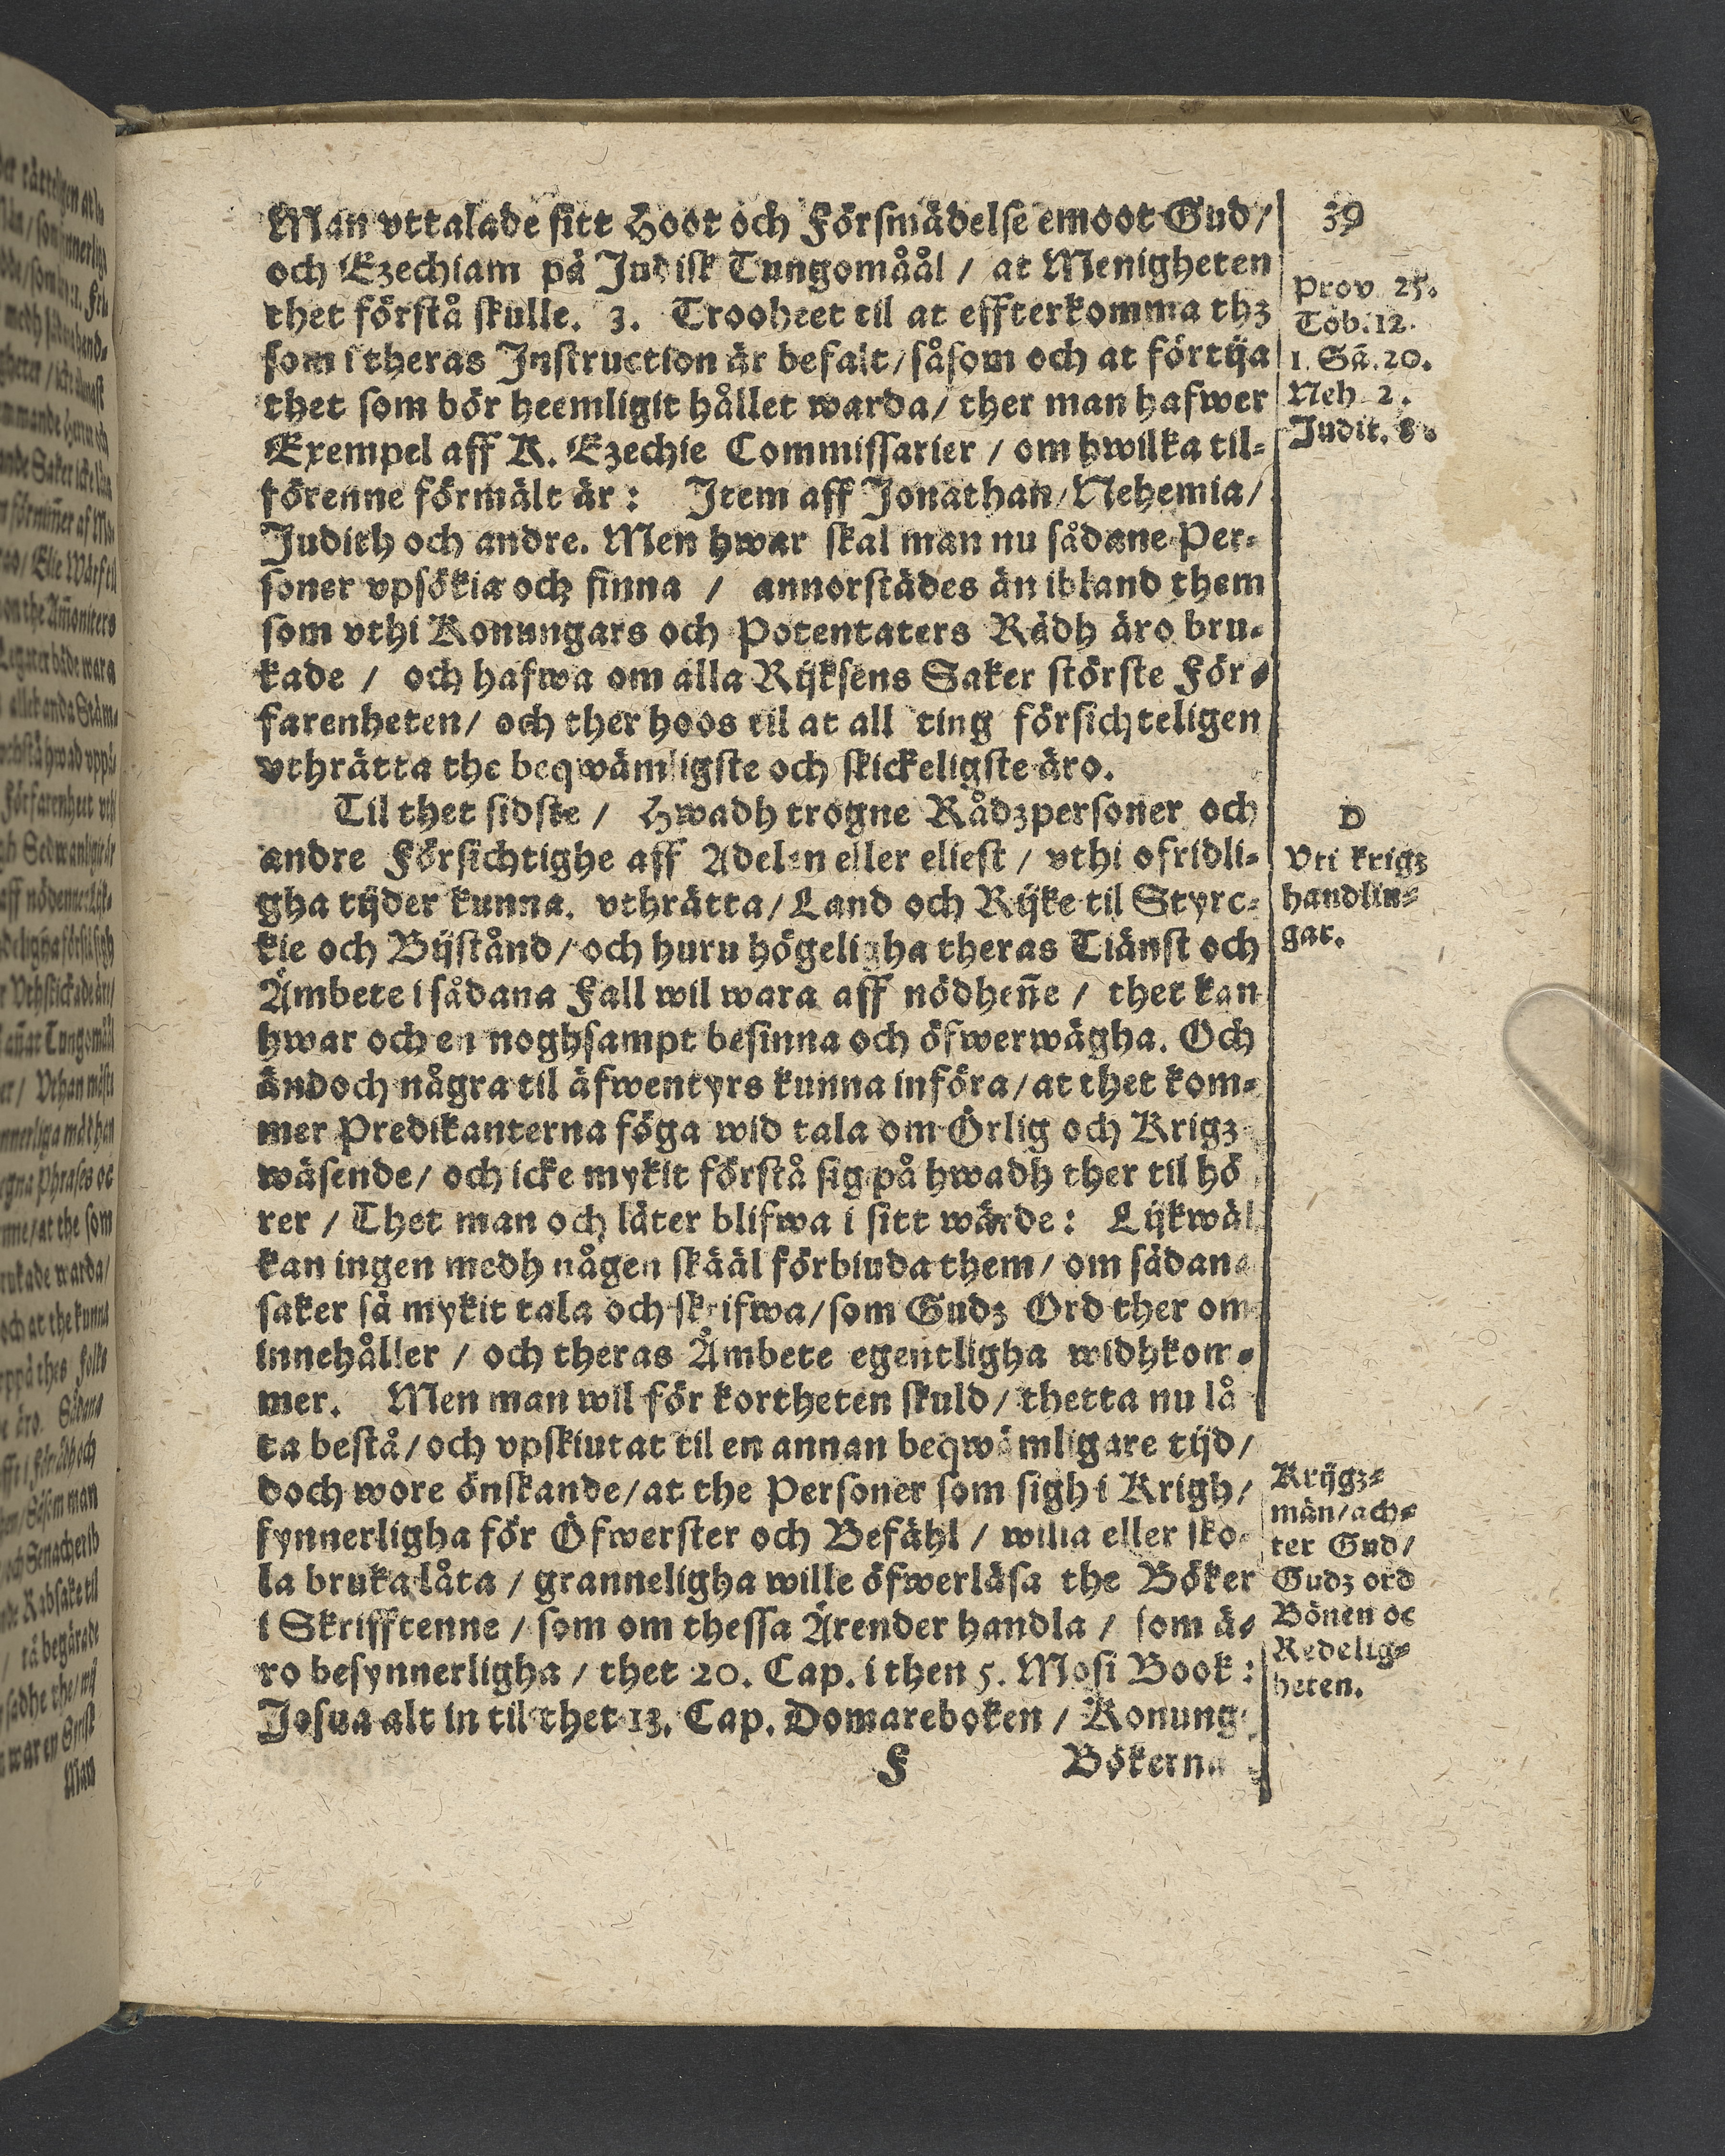 Man vttalade sitt Hoot och Försmädelse emoot Gud/
och Ezechiam på Judisk Tungomåål / at Menigheten
thet förstå skulle. 3. Trooheet til at effterkomma thz
som i theras Instruction är befalt/såsom och at förtija
thet som bör heemligit hållet warda/ ther man hafwer
Exempel aff K. Ezechie Commissarier / om hwilka til-
förenne förmält är: Item aff Jonathan/Nehemia/
Judith och andre. Men hwar skal man nu sådane Per-
soner vpsökia och finna / annorstädes än ibland them
som vthi Konungars och Potentaters Rådh äro bru-
kade / och hafwa om alla Rijksens Saker störste För-
farenheten/ och ther hoos til at all ting försichteligen
vthrätta the beqwämligste och skickeligste äro.
Til thet sidste / Hwadh trogne Rådzpersoner och
andre Försichtighe aff Adelen eller eliest / vthi ofridli-
gha tijder kunna. vthrätta/Land och Rijke til Styrc-
kie och Bijstånd/och huru högeligha theras Tiänst och
Ämbete i sådana Fall wil wara aff nödheñe / thet kan
hwar och en noghsampt besinna och öfwerwägha. Och
ändoch några til äfwentyrs kunna införa/at thet kom-
mer Predikanterna föga wid tala om Örlig och Krigz
wäsende/ och icke mykit förstå sig på hwadh ther til hö
rer / Thet man och låter blifwa i sitt wärde: Lijkwäl
kan ingen medh någen skääl förbiuda them/ om sådana
saker så mykit tala och skrifwa/som Gudz Ord ther om
innehåller / och theras Ämbete egentligha widhkom-
mer. Men man wil för kortheten skuld/ thetta nu lå
ta bestå/och vpskiutat til en annan beqwämligare tijd/
doch wore önskande/at the Personer som sigh i Krigh/
synnerligha för Öfwerster och Befähl / willia eller sko-
la bruka låta / granneligha wille öfwerläsa the Böker
i Skrifftenne / som om thessa Ärender handla / som ä-
ro besynnerligha / thet 20. Cap. i then 5. Mosi Book:
Josua alt in til thet 13. Cap. Domareboken / Konung
F Bökerna
39
Prov 25.
Tob. 12.
1. Sã. 20.
Neh 2.
Judit. 8.
D
Vti krigz
handlin-
gar.
Krijgz-
män/ach-
ter Gud/
Gudz ord
Bönen oc
Redelig-
heten.